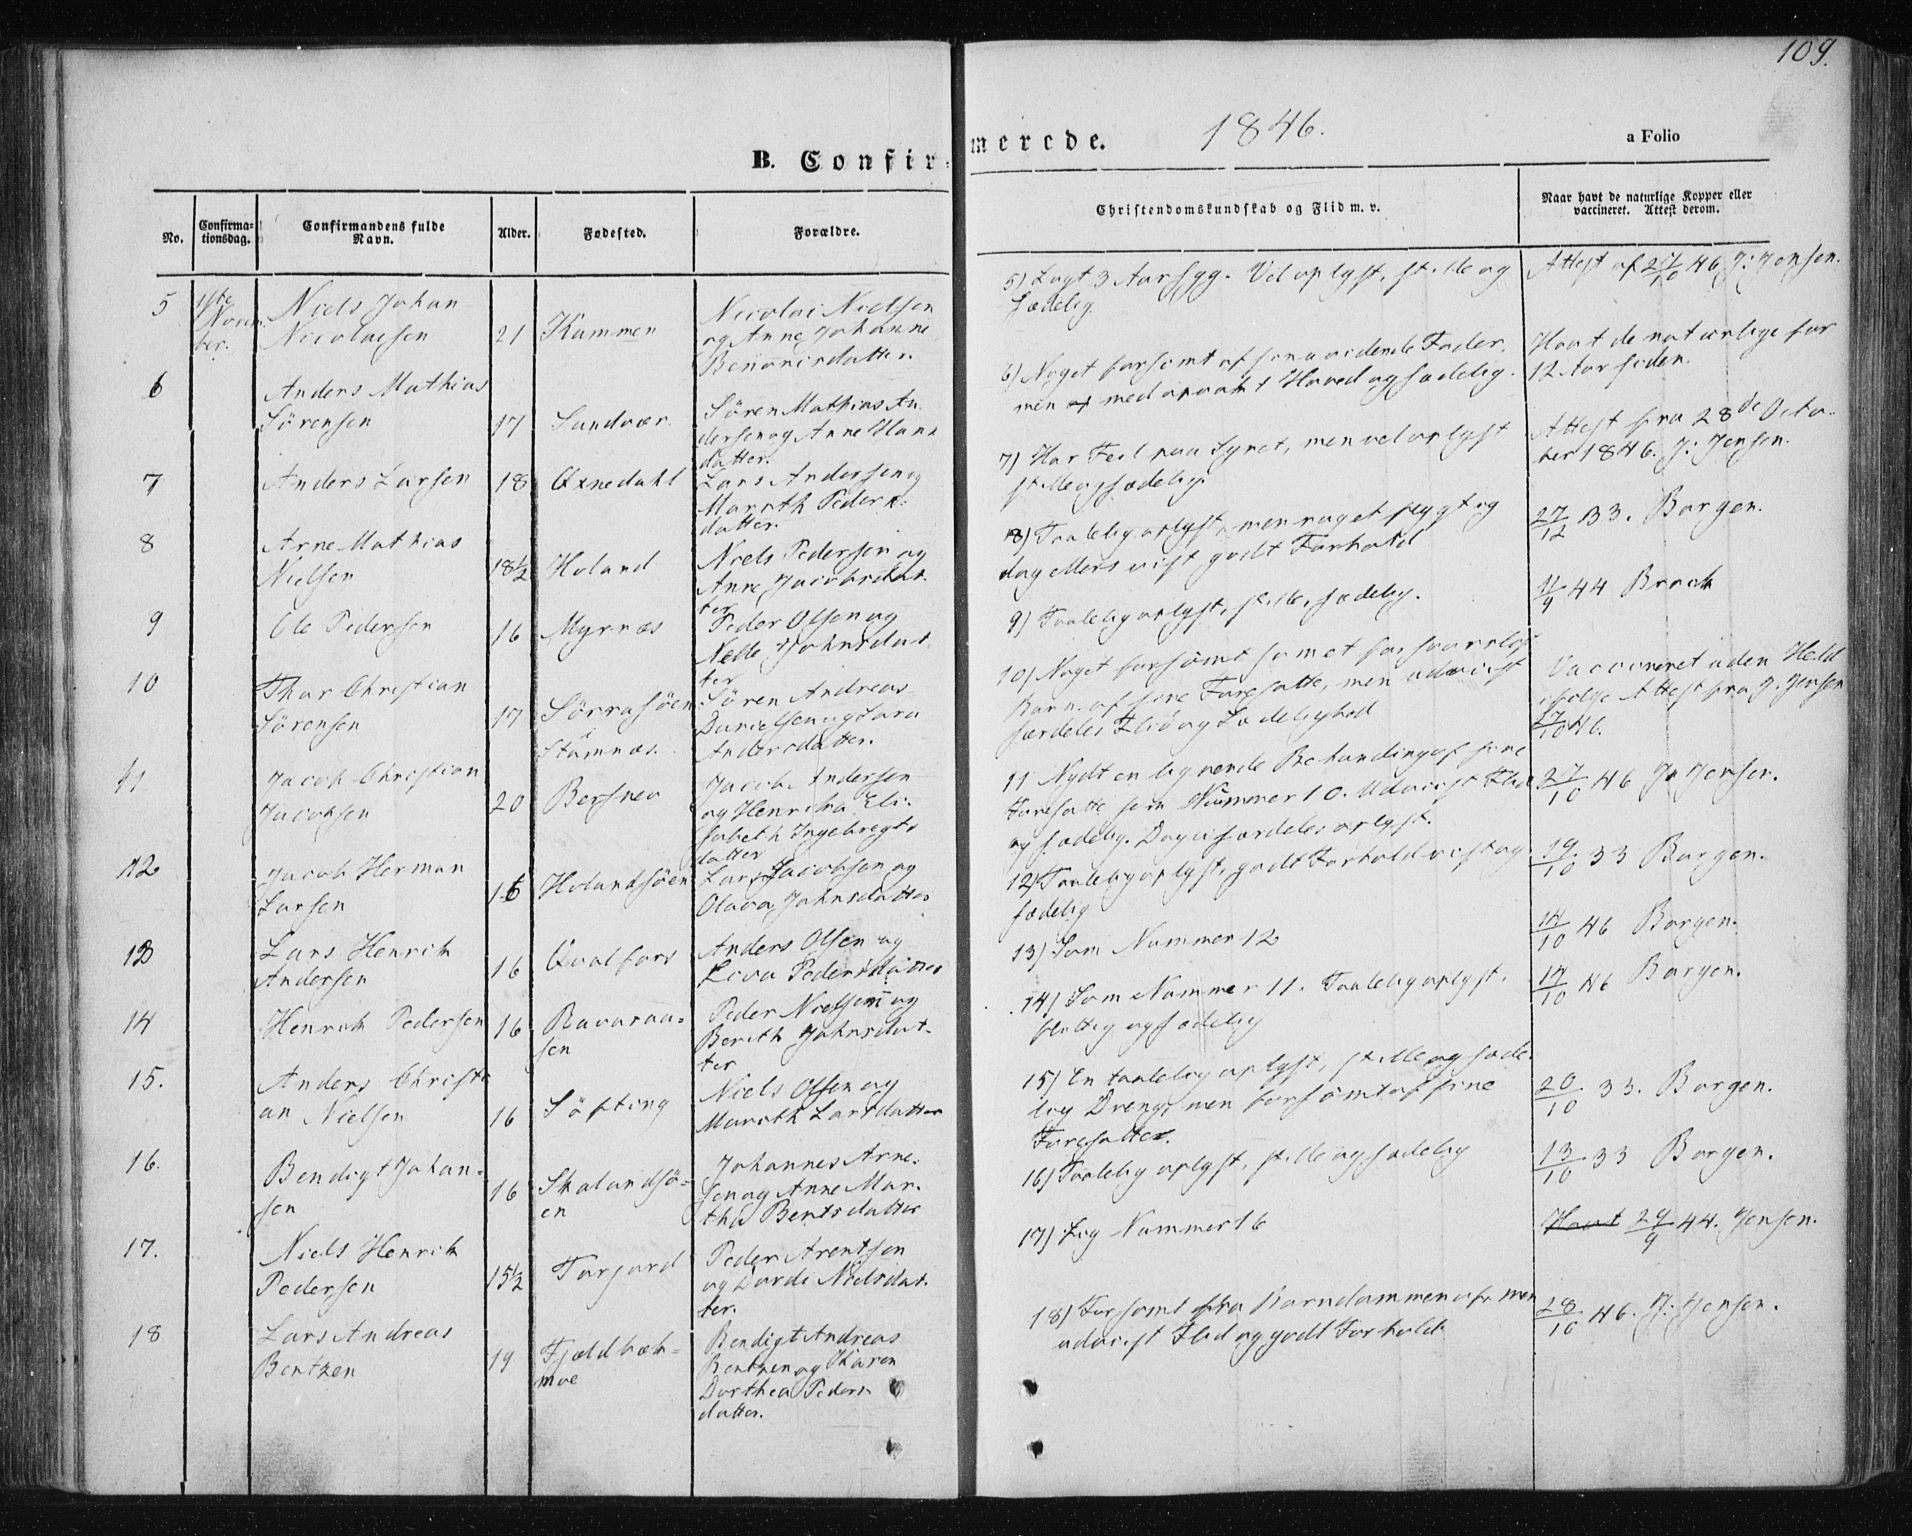 109.
B. Confirmerede. 1846.
a Folio
No.
Confirma-
tionsdag.
Confirmandens fulde
Navn.
Alder.
Fødested.
Forældre.
Christendomskundskab og Flid m. v.
Naar havt de naturlige Kopper eller
vaccineret. Attest derom.
5
1ste
Novem-
ber.
Niels Johan
Nicolaisen
21
Kammen
Nicolai Nielsen
og Anne Johanne
Benonisdatter.
5) Lagt 3 Aar syg. Vel oplyst, stille og
sædelig.
Attest af 27/10 46 J: Jensen.
6
Anders Mathias
Sörensen
17
Sandvær
Sören Mathias An-
dersen og Anne Hans
datter.
6) Noget forsömt af sin uvidende Fader,
men med opvakt Hoved og sædelig.
Havt de naturlige for
12 Aar siden.
7
Anders Larsen
18
Oxnedahl
Lars Andersen og
Mareth Peders-
datter.
7) Har Feil paa Synet, men vel oplyst
stille og sædelig.
Attest fra 28de Octo-
ber 1846. J: Jensen.
8
Arne Mathias
Nielsen
18½
Holand
Niels Pedersen og
Anne Jacobsdat-
ter
8) Taalelig oplyst, men noget
dog ellers vist godt Forhold
27/12 33. Borgen.
9
Ole Pedersen
16
Myrnæs
Peder Olsen og
Nelle Johnsdat-
ter
9) Taalelig oplyst, stille, sædelig.
11/9 44 Brock
10
Thor Christian
Sörensen
17
Sörrasöen
Stamnæs.
Sören Andreas
Danielsen og Sara
Andersdatter.
10) Noget forsömt som et forsvarslöst
Barn af sine Foresatte, men udviist
særdeles Flid og Sædelighed
Vaccineret uden Held
ifölge Attest fra J. Jensen
27/10 46.
11
Jacob Christian
Jacobsen
20
Bersnev
Jacob Andersen
og Henrika Eli-
sabeth Ingebregts
datter
11 Nydt en lignende Behandling af sine
Foresatte som Nummer 10. Udviist Flid
og sædelig. Dog ei særdeles oplyst.
27/10 46 J. Jensen.
12
Jacob Herman
Larsen
16
Holandsöen
Lars Jacobsen og
Olava Johnsdatter
12) Taalelig oplyst, godt Forhold vist og
sædelig
19/10 33 Borgen.
13
Lars Henrik
Andersen
16
Qvalfors
Anders Olsen og
Lova Pedersdatter
13) Som Nummer 12
14/10 46 Borgen.
14
Henrik Pedersen
16
Ravaraa-
sen
Peder Nielsen og
Berith Johnsdat-
ter
14) Som Nummer 11. Taalelig oplyst,
flittig og sædelig
14/10 46 Borgen.
15.
Anders Christi
an Nielsen
16
Söfting
Niels Olsen og
Mareth Larsdatter
15) En taalelig oplyst, stille og sæde-
lig Dreng, men forsömt af sine
Foresatte.
20/10 33. Borgen.
16.
Bendigt Johan-
sen
16
Skalandsö-
en
Johannes Arne-
sen og Anne Mar-
tha Bentsdatter
16) Taalelig oplyst, stille og sædelig
13/10 33 Borgen.
17.
Niels Henrik
Pedersen
15½
Forjord
Peder Arentsen
og Dorde Nielsdat-
ter.
17) Lig Nummer 16
Havt 29/9 44. Jensen.
18
Lars Andreas
Bentzen
19
Fjeldbæk-
moe
Bendigt Andreas
Bentzen og Karen
Dorthea Peders-
datter.
18) Forsömt fra Barndommen af, men
udviist Flid og godt Forhold
28/10 46. J. Jensen.